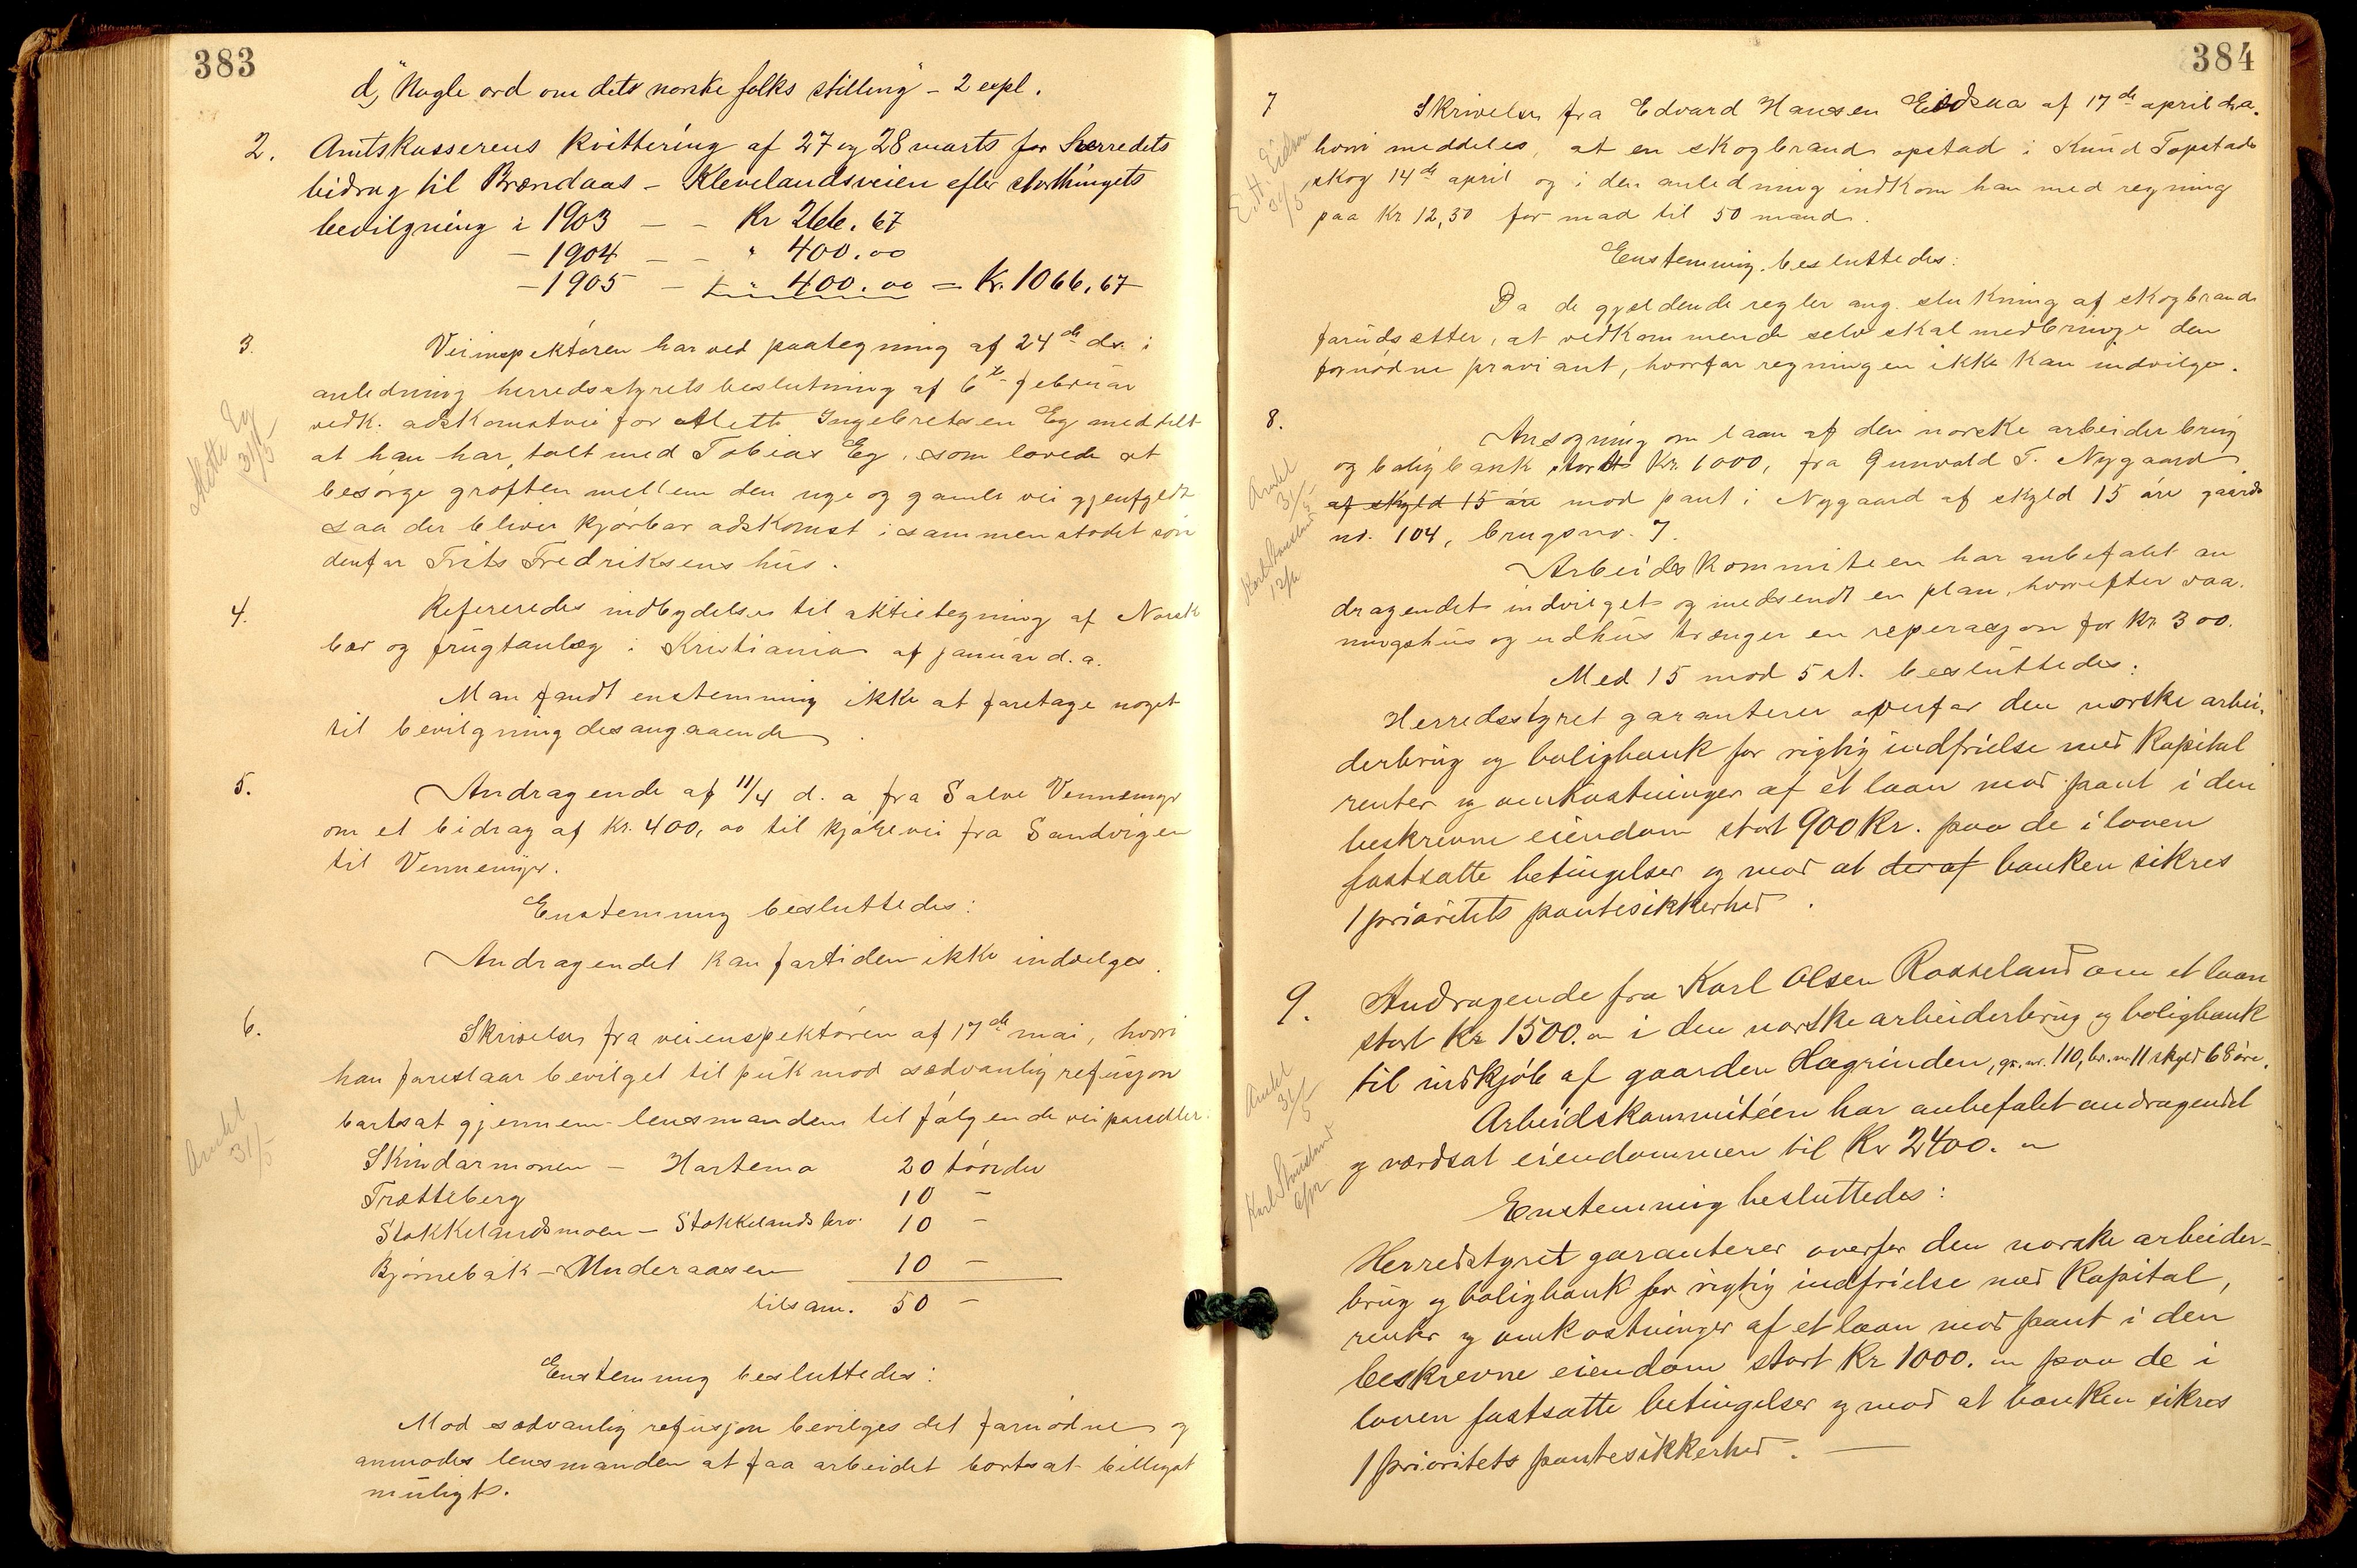 383
d, "Nogle ord om dets norske folks stilling" - 2 expl.
2. Amtskassererens kvittering af 27 og 28 marts for herredets
bidrag til Brændaas - Klevelandsveien efter storthingets
bevilgning i 1903 - - Kr 266.67
- 1904 - - " 400.00
- 1905 - - " 400.00 = Kr. 1066,67
3. Veiinspektøren har ved paategning af 24de ds. i
anledning herredsstyrets beslutning af 6te februar
vedk. adskomstvei for Mette Ingebretsen Eg meddelt
at han har talt med Tobias Eg, som lovede at
besørge grøften mellem den nye og gamle vei gjenfyldt
saa der bliver kjørbar adskomst i sammenstødet søn
denfor Frits Fredriksens hus.
Mette Eg
31/5
4. Refereredes indbydelse til aktietegning af Norsk
bær og frugtanlæg i Kristiania af januar d. a.
Man fandt enstemmig ikke at foretage noget
til bevilgning desangaaende.
5. Andragende af 11/4 d. a. fra Salve Vennemyr
om et bidrag af Kr. 400,00 til kjørevei fra Sandvigen
til Vennemyr.
Enstemmig besluttedes:
Andragendet kan fortiden ikke indvilges.
6. Skrivelse fra veiinspektøren af 17de mai, hvori
han foreslaar bevilget til puk mod sædvanlig refusjon
bortsat gjennem lensmanden til følgende veiparseller.
31/5
Skindarmonen - Hortemo 20 tønder
Trætteberg 10 -
Stokkelandsmoen - Stokkelands bro. 10 -
Bjørnebak - Underaasen 10 -
tilsam. 50 -
Enstemmig besluttedes:
Mod sædvanlig refusjon bevilges det fornødne og
anmodes lensmanden at faa arbeidet bortsat billigst
muligt.
384
7 Skrivelse fra Edvard Hansen Eidsaa af 17de april d.a.
hvori meddeles, at en skogbrand opstod i Knud Topstads
skog 14de april og i den anledning indkom han med regning
paa Kr 12,50 for mad til 50 mand.
31/5
Enstemmig besluttedes:
Da de gjældende regler ang. slukning af skogbrande
forudsætter, at vedkommende selv skal medbringe den
fornødne proviant, hvorfor regningen ikke kan indvilges.
8. Ansøgning om laan af den norske arbeiderbrug
og boligbank stort Kr. 1000, fra Gunvald T. Nygaard
af skyld 15 øre mod pant i Nygaard af skyld 15 øre gaards
no. 104, brugsno. 7.
31/5
Arbeidskommiteen har anbefalt an
dragendet indvilget og medsendt en plan, hvorefter vaa-
ningshus og udhus trænger en reperasjon for Kr 300.
Med 15 mod 5 st. besluttedes:
Herredsstyret garanterer overfor den norske arbei-
derbrug og boligbank for rigtig indfrielse med kapital
renter og omkostninger af et laan mod pant i den
beskrevne eiendom stort 900 Kr. paa de i loven
fastsatte betingelser og mod at deraf banken sikres
1 prioritets pantesikkerhed.
9. Andragende fra Karl Olsen Rosseland om et laan
stort Kr 1500.00 i den norske arbeiderbrug og boligbank
til indkjøb af gaarden Hægrinden, gr. nr. 110, br. nr 11 skyld 68 øre.
31/5
Arbeidskommitéen har anbefalet andragendet
og værdsat eiendommen til Kr 2400.00
Enstemmig besluttedes:
Herredstyret garanterer overfor den norske arbeider-
brug og boligbank for rigtig indfrielse med Kapital,
renter og omkostninger af et laan mod pant i den
beskrevne eiendom stort Kr 1000.00 paa de i
loven fastsatte betingelser og mod at banken sikres
1 prioritets pantesikkerhed. —